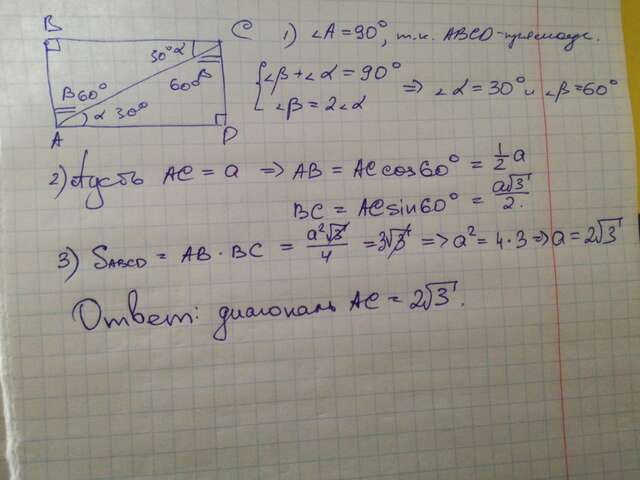 B C
30° α
60° β
β 60°
α 30°
A D
1) ∠A = 90°, т.к. ABCD-прямоуг.
{∠β + ∠α = 90°
∠β = 2∠α ⇒ ∠α = 30° и ∠β = 60°
2) Пусть AC = a ⇒ AB = AC cos 60° = 1/2 a
BC = AC sin 60° = a√3/2.
3) SABCD = AB · BC = a²√3/4 = 3√3 ⇒ a² = 4·3 ⇒ a = 2√3
Ответ: диагональ AC = 2√3.